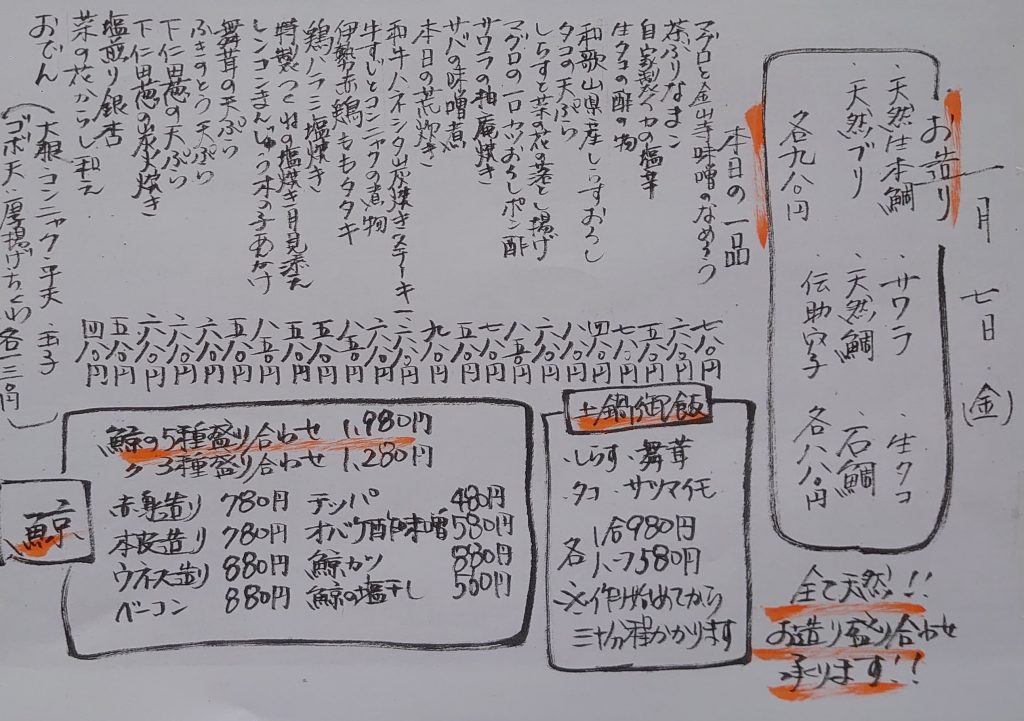 一月七日(金)
お造り
・天然生本鮪 ・サワラ ・生タコ
・天然ブリ 天然鯛 石鯛
各九八〇円 伝助穴子 各八八〇円
全て天然!!
お造り盛り合わせ
承ります!!
本日の一品
マグロと金山寺味噌のなめろう
茶ぶりなまこ
自家製イカの塩辛
生タコの酢の物
和歌山県産しらすおろし
タコの天ぷら
しらすと菜の花の落とし揚げ
マグロの一口カツおろしポン酢
サワラの柚庵焼き
サバの味噌煮
本日の荒炊き
和牛ハネシタ炭焼きステーキ
牛すじとコンニャクの煮物
伊勢赤鶏ももタタキ
鶏ハラミ塩焼き
特製つくねの塩焼き月見添え
レンコンまんじゅう木の子あんかけ
舞茸の天ぷら
ふきのとう天ぷら
下仁田葱の天ぷら
下仁田葱の炭火焼き
塩煎り銀杏
菜の花からし和え
おでん
(大根・コンニャク・平天・玉子
ゴボ天・厚揚げ・ちくわ 各一三〇円)
土鍋御飯
・しらす・舞茸
・タコ・サツマイモ
各 1合980円
ハーフ580円
※作り始めてから
三十分程かかります
鯨
鯨の5種盛り合わせ 1,980円
〃 3種盛り合わせ 1,280円
赤身造り 780円 テッパ 480円
本皮造り 780円 オバケ酢味噌 580円
ウネス造り 880円 鯨カツ 880円
ベーコン 880円 鯨の塩干し 500円